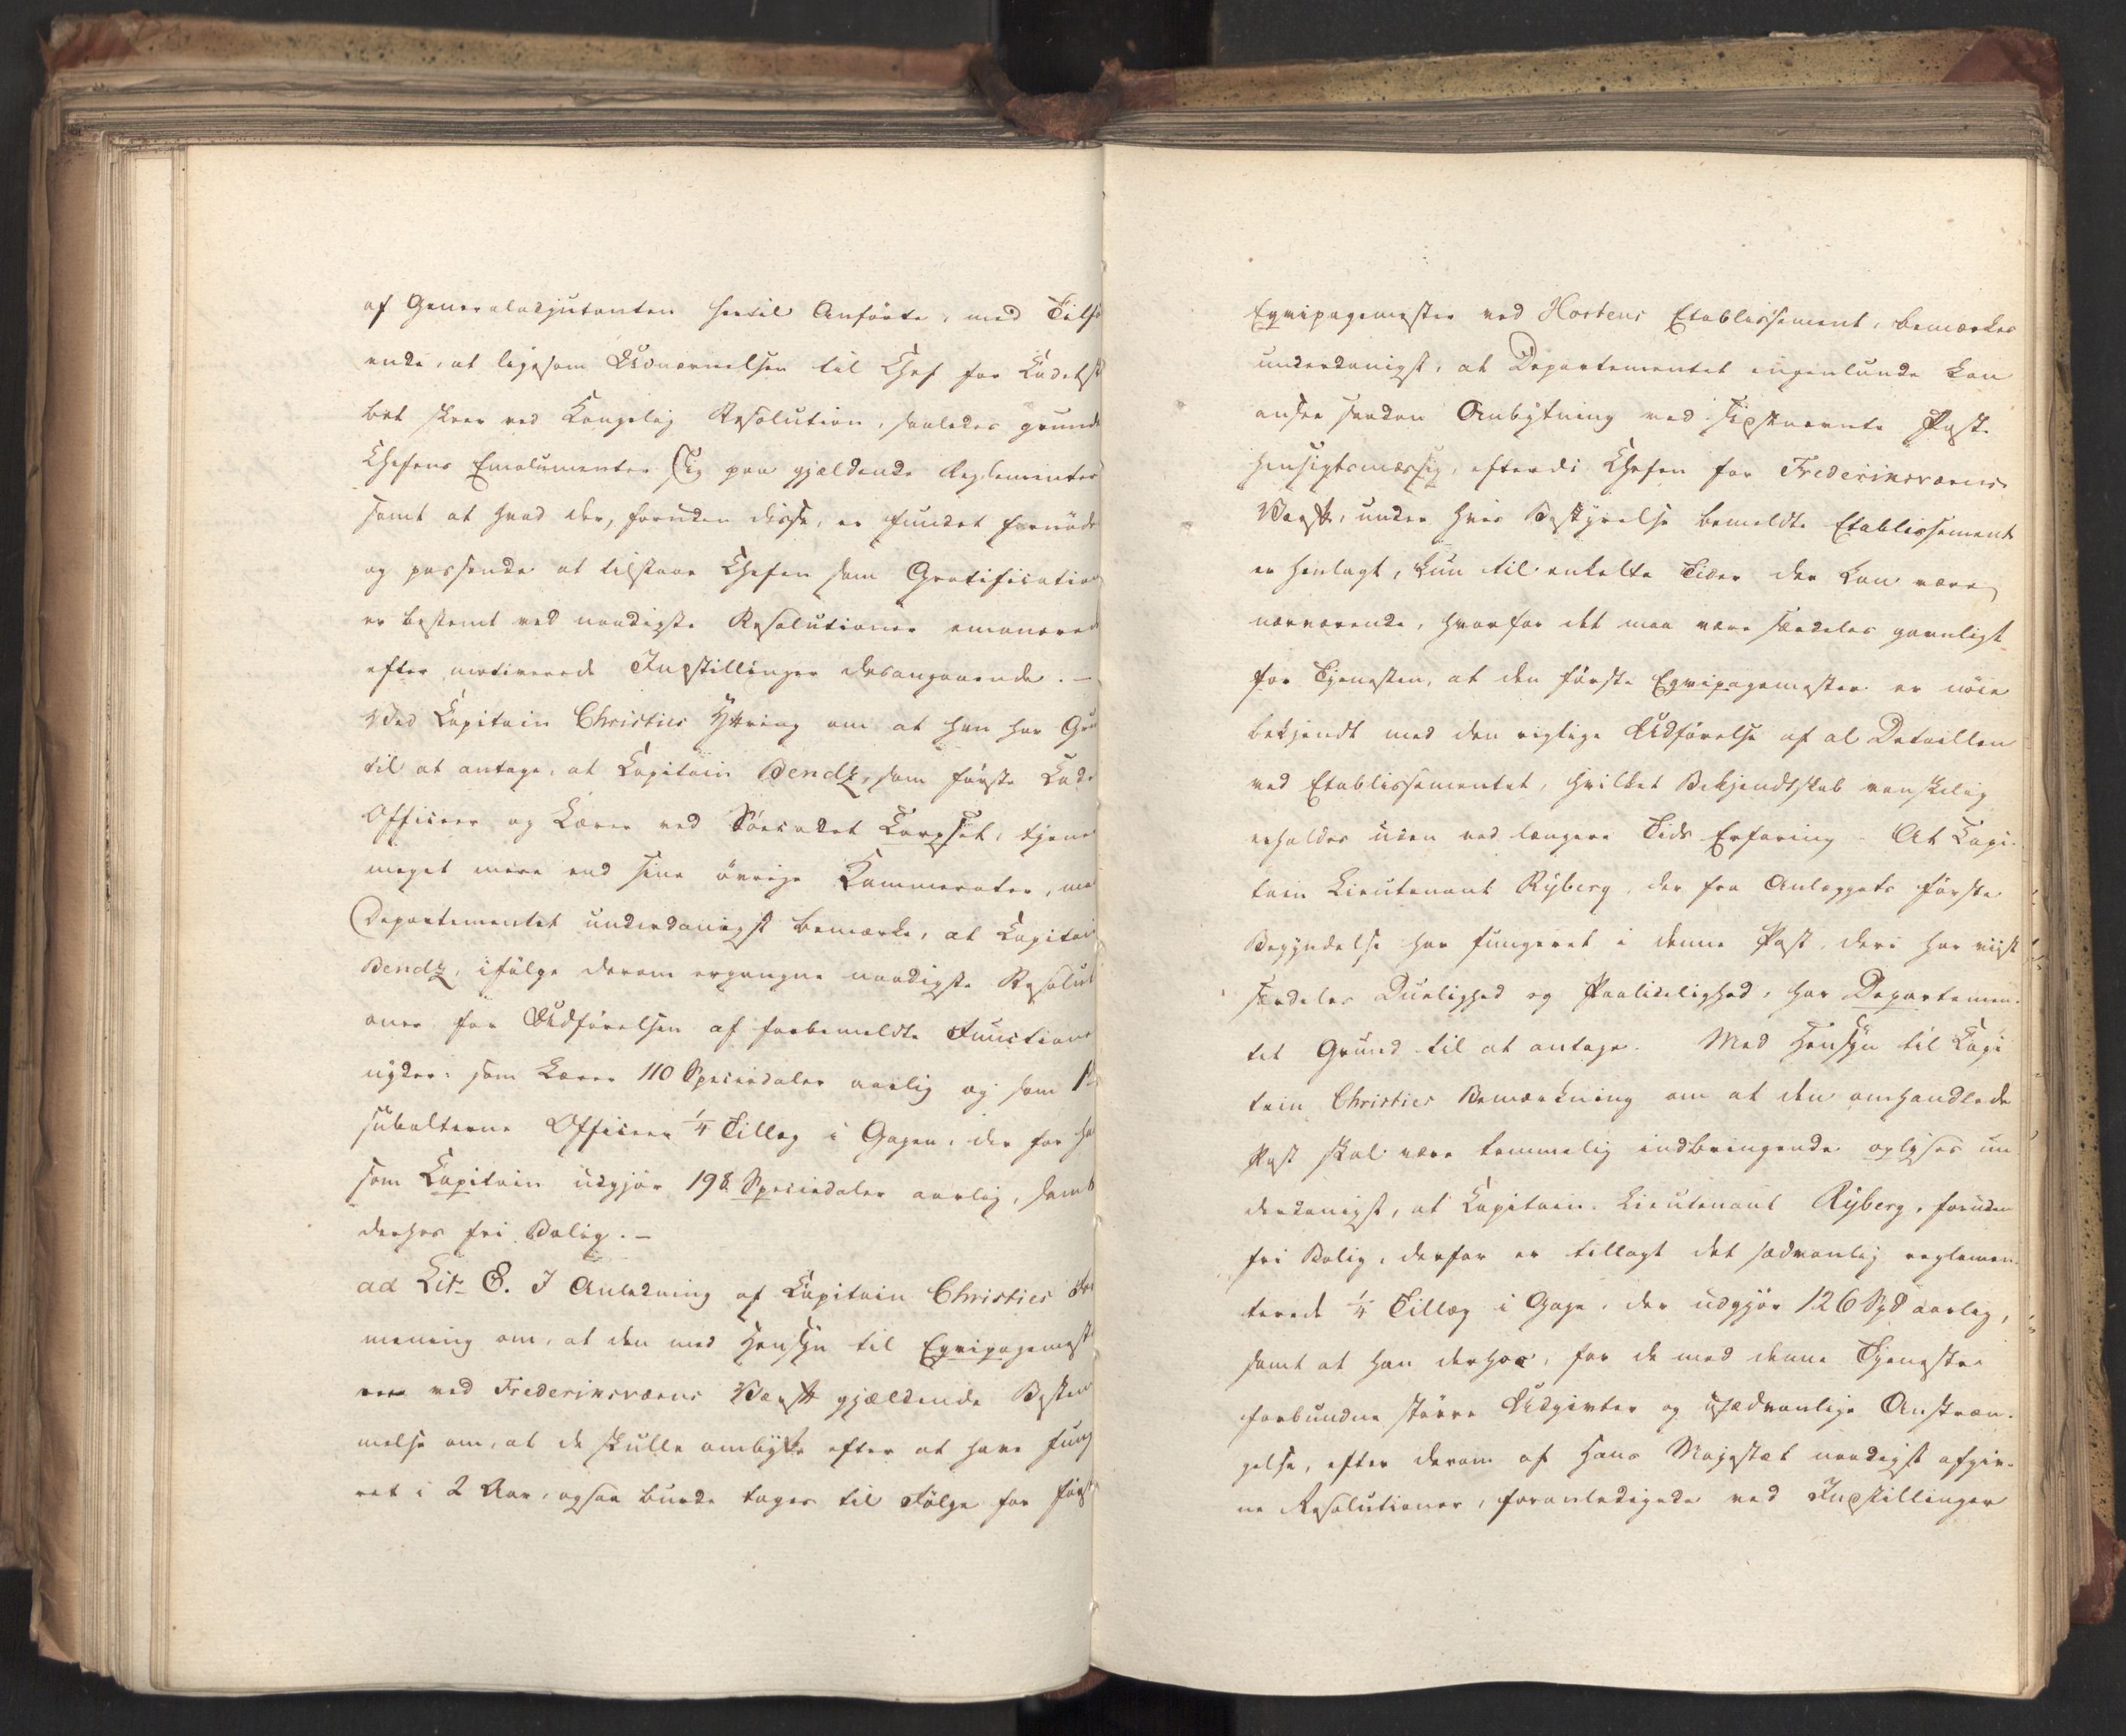 af Generaladjutanten hertil Anförte, med Tilfö
ende, at ligesom Udnævnelsen til Chef for Kadetsk
bet skeer ved Kongelig Resolution, saaledes grunde
Chefens Emolumenter sig paa gjældende Reglementer
samt at hvad der, foruden disse, er fundet fornöde
og passende at tilstaae Chefen som Gratification
er bestemt ved naadigste Resolutioner emanered
efter motiverede Indstillinger desangaaende. –
Ved Capitain Christies Yttring om at han har Gru
til at antage, at Capitain Bendz, som förste Cade
Officeer og Lærer ved Söecadet Corpset, tjener
meget mere end sine övrige Kammerater, maa
Departementet underdanigst bemærke, at Capitai
Bendz, ifölge derom ergangne naadigste Resoluti
oner for Udförelsen af forbemeldte Functioner
nyder: som Lærer 110 Speciedaler aarlig og som 1ste
subalterne Officeer 1/4 Tillæg i Gagen, der for ha
som Capitain udgjör 198 Speciedaler aarlig, samt
derhos fri Bolig. –
ad Litr. E. I Anledning af Capitain Christies For
mening om, at den med Hensyn til Eqvipagemest
rene ved Frederiksværns Værft gjældende Bestem
melse om, at de skulle ombytte efter at have fung
ret i 2 Aar, ogsaa burde tages til Fölge for först
Eqvipagemester ved Hortens Etablissement, bemærkes
underdanigst, at Departementet ingenlunde kan
ansee saadan Ombytning ved sidstnævnte Post
hensigtsmæssig, efterdi Chefen for Frederiksværns
Værft, under hvis Bestyrelse bemeldte Etablissement
er henlagt, kun til enkelte Tider der kan være
nærværende, hvorfor det maa være særdeles gavnligt
for Tjenesten, at den förste Eqvipagemester er nöie
bekjendt med den rigtige Udförelse af al Detaillen
ved Etablissementet, hvilket Bekjendtskab vanskelig
erholdes uden ved længere Tids Erfaring. At Capi-
tain Lieutenant Ryberg, der fra Anlæggets förste
Begyndelse har fungeret i denne Post, deri har viist
særdeles Duelighed og Paalidelighed, har Departemen-
tet Grund til at antage. Med Hensyn til Capi
tain Christies Bemærkning om at den omhandlede
Post skal være temmelig indbringende oplyses un
derdanigst, at Capitain-Lieutenant Ryberg, foruden
fri Bolig, derfor er tillagt det sædvanlig reglemen-
terede 1/4 Tillæg i Gage, der udgjör 126 Spd aarlig,
samt at han derhos, for de med denne Tjeneste
forbundne större Udgivter og usædvanlige Anstræn-
gelse, efter derom af Hans Majestæt naadigst afgiv-
ne Resolutioner, foranledigede ved Indstillinger